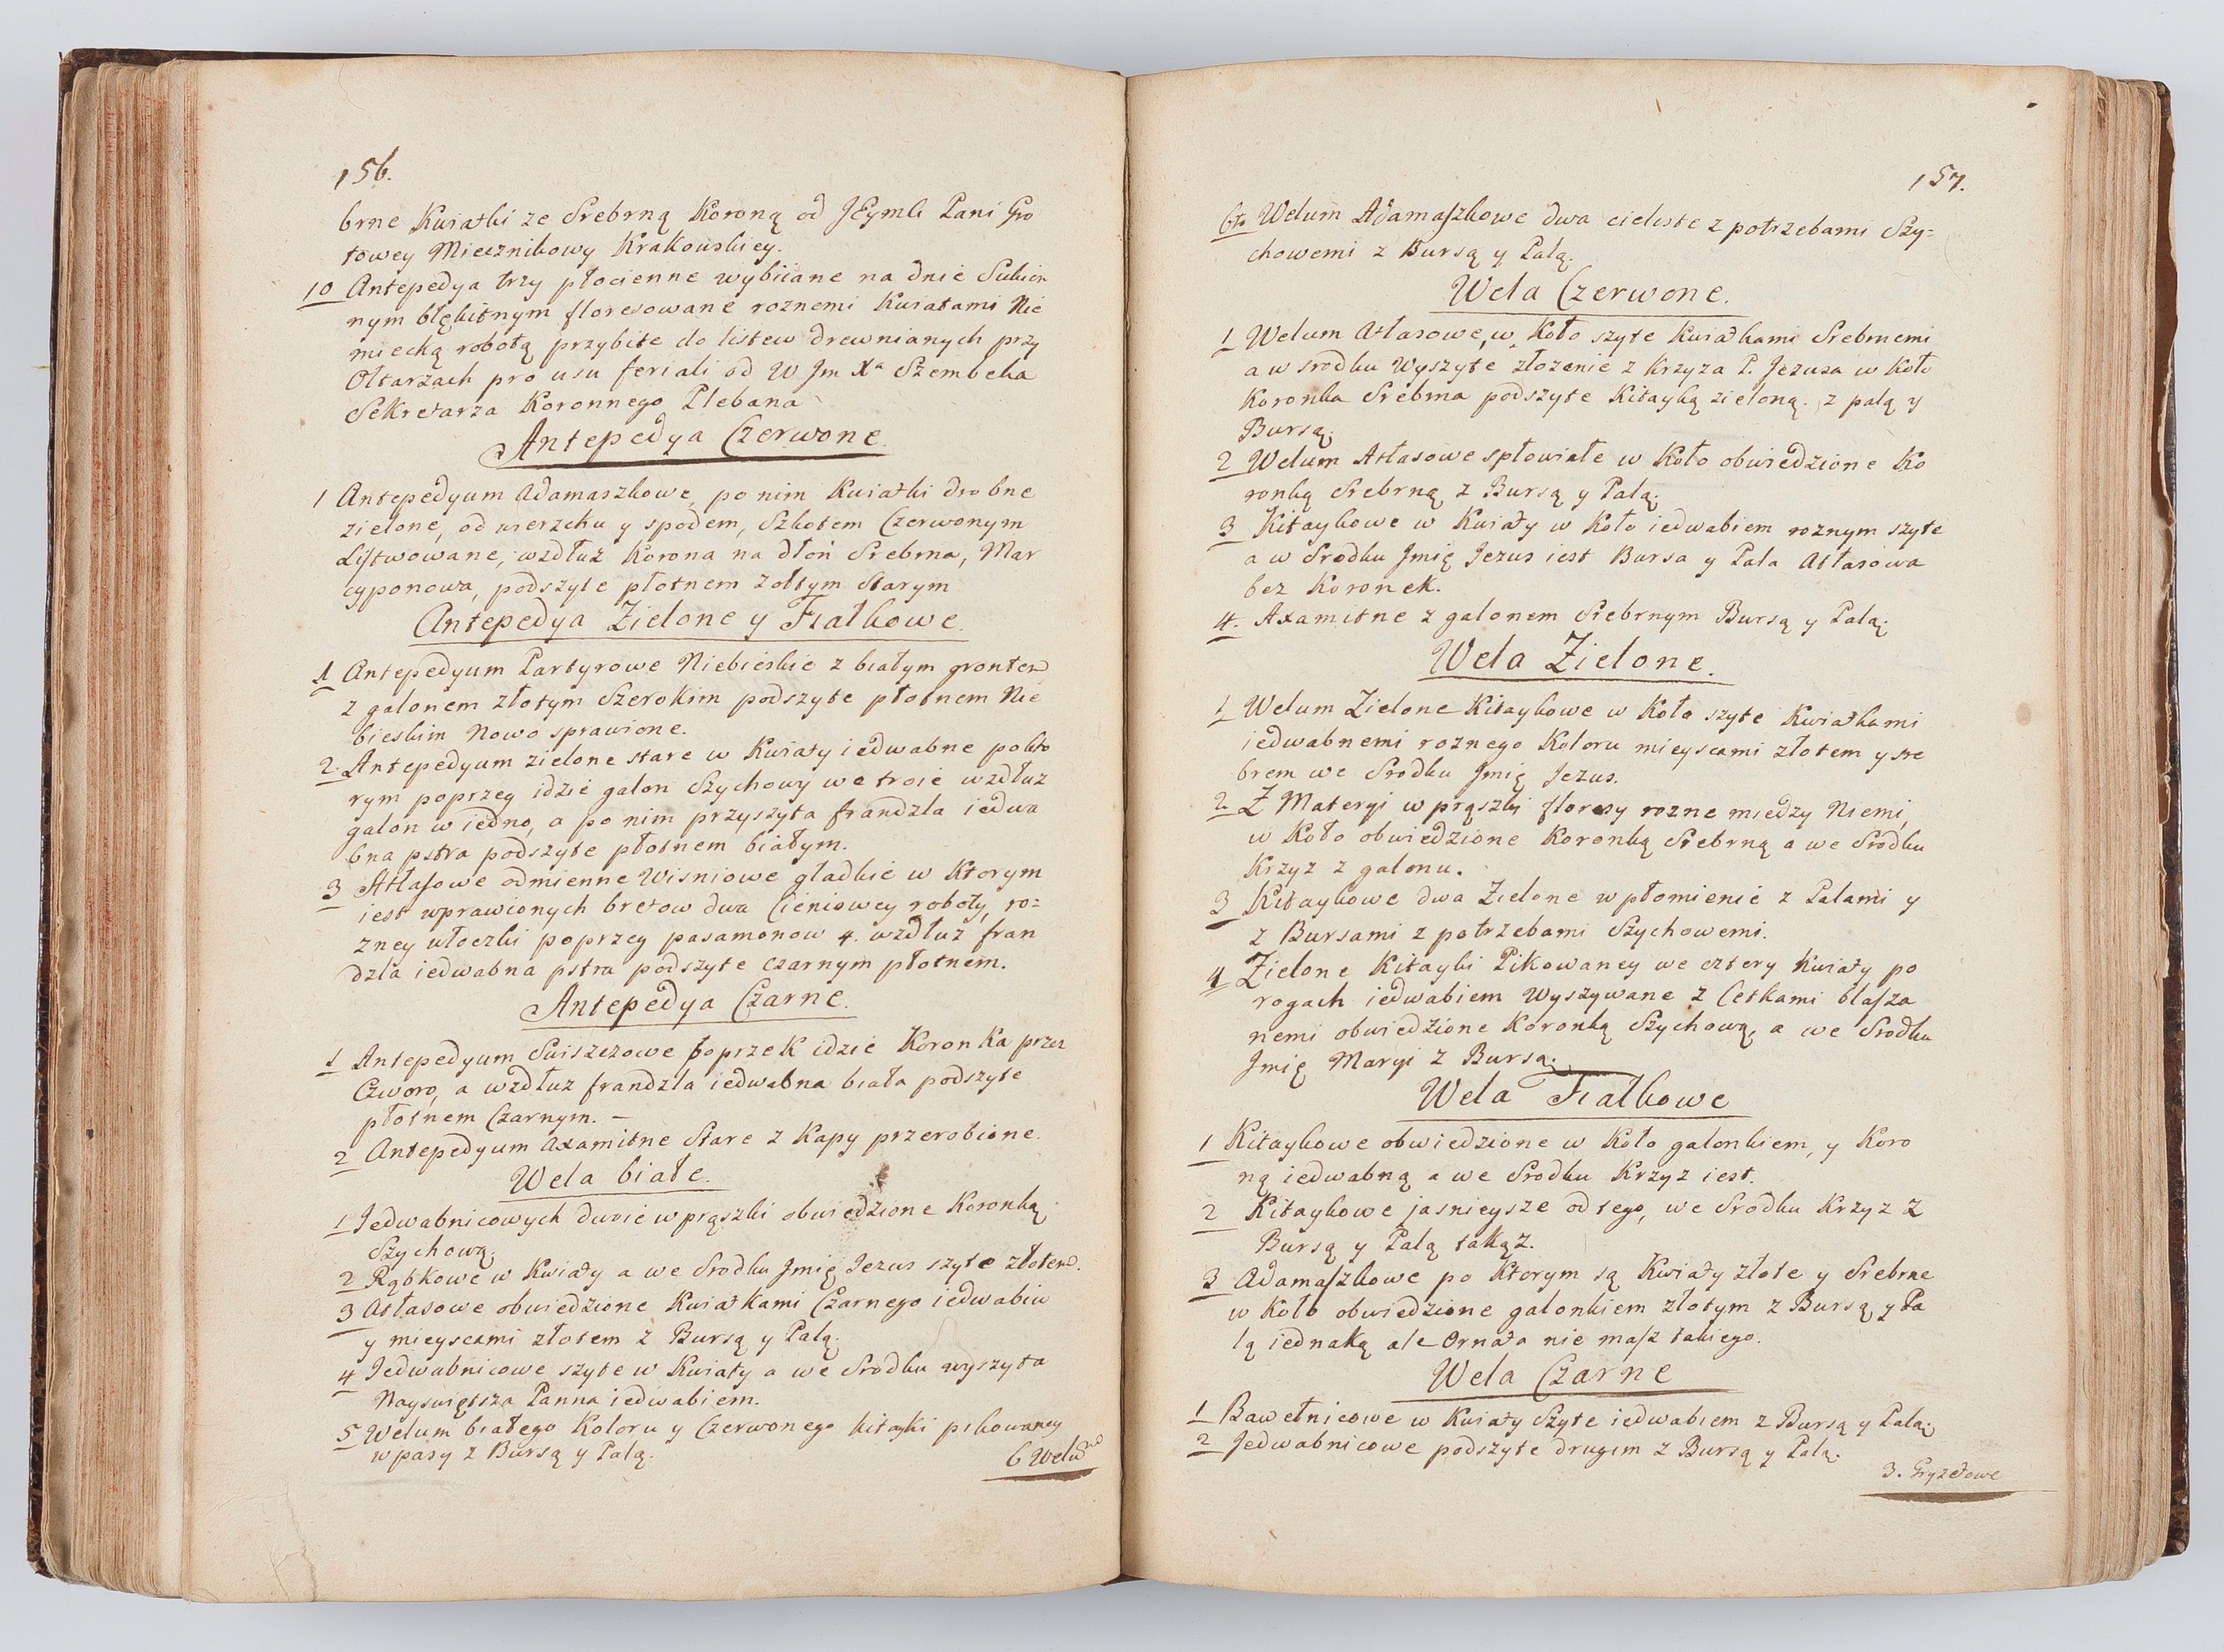 156.
brne Kwiatki ze Srebrną Koroną od JEymЬ Pani Gro
towey Miecznikowy Krakowskiey.
10 Antepedya trzy płocienne wybiiane na dnie Sukien
nym błękitnym floresowane roznemi Kwiatami Nie
miecką robotą przybite do listew drewnianych przy
Ołtarzach pro usu feriali od W Jm Xa Szembeka
Sekretarza Koronnego Plebana
Antepedya Czerwone
1 Antepedyum Adamaszkowe, po nim Kwiatki drobne
zielone, od wierzchu y spodem, Szkotem Czerwonym
Listwowane, wzdłuż Korona na dłoń Srebrna, Mar
cyponowa, podszyte płotnem zołtym Starym
Antepedya Zielone y Fiałkowe.
1 Antepedyum Partyrowe Niebieskie z białym grontem
z galonem złotym Szerokim podszyte płotnem Nie
bieskim Nowo sprawione.
2. Antepedyum zielone stare w Kwiaty iedwabne po kto
rym poprzeg idzie galon Szychowy we troie wzdłuz
galon w iedno, a po nim przyszyta frandzla iedwa
bna pstra podszyte płotnem białym.
3 Atłasowe odmienne Wisniowe gładkie w Ktorym
iest wprawionych bretow dwa Cieniowey roboty, ro=
zney włoczki poprzeg pasamonow 4. wzdłuz fran
dzla iedwabna pstra podszyte czarnym płotnem.
Antepedya Czarne.
1 Antepedyum Swiszczowe poprzek idzie Koronka przez
Czworo, a wzdłuz frandzla iedwabna biała podszyte
płotnem Czarnym. –
2 Antepedyum Axamitne Stare z Kapy przerobione.
Wela białe.
1 Jedwabnicowych dwoie w prąszki obwiedzione Koronką
Szychową.
2 Rąbkowe w Kwiaty a we Srodku Jmię Jezus szyte złotem.
3 Atłasowe obwiedzione Kwiatkami Czarnego iedwabiu
y mieyscami złotem z Bursą y Palą.
4 Jedwabnicowe szyte w Kwiaty a we Srodku wyszyta
Nayswiętsza Panna iedwabiem.
5 Welum białego Koloru y Czerwonego kitayki pikowaney
w pasy z Bursą y Palą.
6 Welum
157.
6to Welum Adamaszkowe dwa cieliste z potrzebami Szy=
chowemi z Bursą y Palą.
Wela Czerwone.
1 Welum Atłasowe, w, Koło szyte Kwiatkami Srebrnemi
a w srodku Wyszyte złozenie z Krzyza P. Jezusa w Koło
Koronka Srebrna podszyte Kitayką zieloną. z palą y
Bursą.
2 Welum Atłasowe spłowiałe w Koło obwiedzione Ko
ronką Srebrną z Bursą y Palą.
3 Kitaykowe w Kwiaty w Koło iedwabiem roznym szyte
a w Srodku Jmię Jezus iest Bursa y Pala Atłasowa
bez Koronek.
4. Axamitne z galonem Srebrnym Bursą y Palą.
Wela Zielone.
1 Welum Zielone Kitaykowe w Koło szyte Kwiatkami
iedwabnemi roznego Koloru mieyscami złotem y sre
brem we Srodku Jmię Jezus.
2 Z Materyi w prąszki floresy rozne miedzy Niemi,
w Koło obwiedzione Koronką Srebrną a we Srodku
Krzyz z galonu.
3 Kitaykowe dwa Zielone w płomienie z Palami y
z Bursami z potrzebami Szychowemi.
4 Zielone Kitayki Pikowaney we cztery Kwiaty po
rogach iedwabiem Wyszywane z Cetkami blasza
nemi obwiedzione Koronką Szychową, a we Srodku
Jmię Maryi z Bursą.
Wela Fiałkowe
1 Kitaykowe obwiedzione w Koło galonkiem, y Koro
ną iedwabną a we Srodku Krzyz iest.
2 Kitaykowe jasnieysze od tego, we Srodku Krzyz z
Bursą y Palą takąz.
3 Adamaszkowe po Ktorym są Kwiaty złote y Srebrne
w Koło obwiedzione galonkiem złotym z Bursą y Pa
lą iednaką ale Ornata nie masz takiego.
Wela Czarne
1 Bawełnicowe w Kwiaty Szyte iedwabiem z Bursą y Palą.
2 Jedwabnicowe podszyte drugim z Bursą y Palą.
3. Gryzetowe